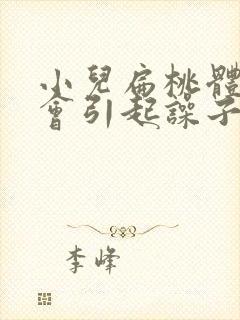 小兒扁桃體
會引起譟子
李峰